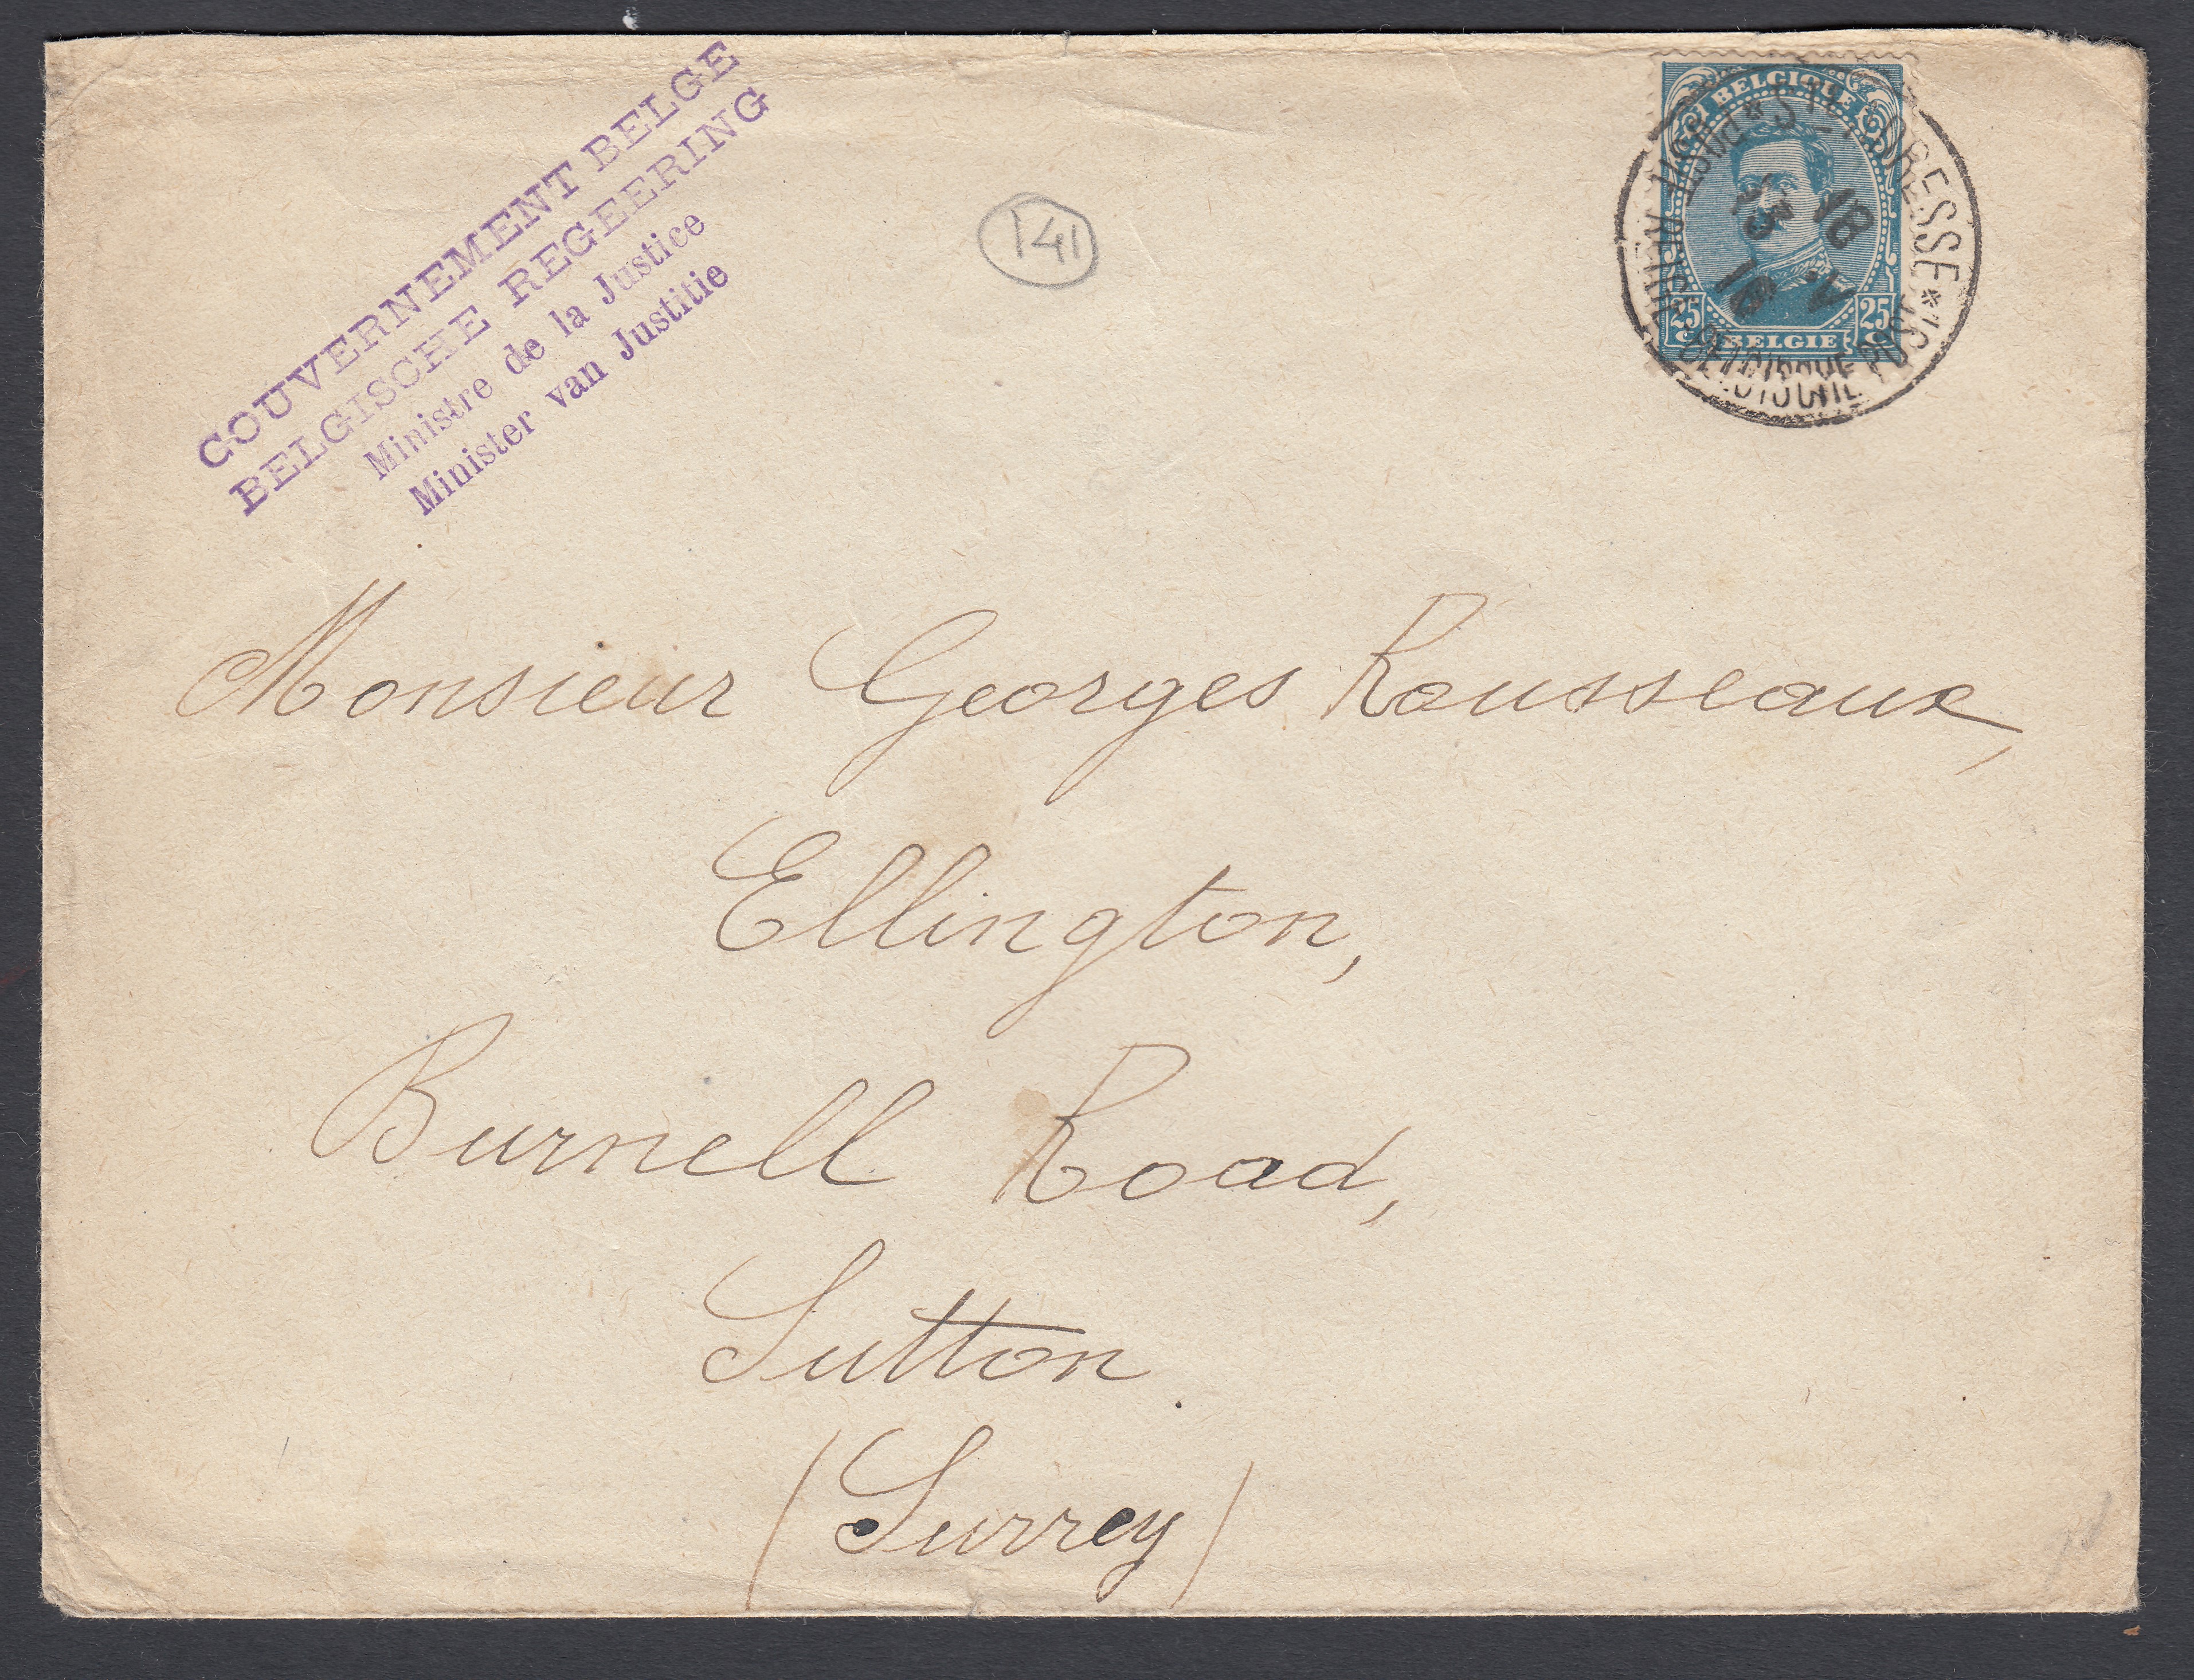 GOUVERNEMENT BELGE
BELGISCHE REGEERING
Ministre de la Justice
Minister van Justitie
141
BELGIQUE
25 25
C BELGIE C
18
V
Monsieur Georges Rousseaux,
Ellington,
Burnell Road,
Sutton.
(Surrey)